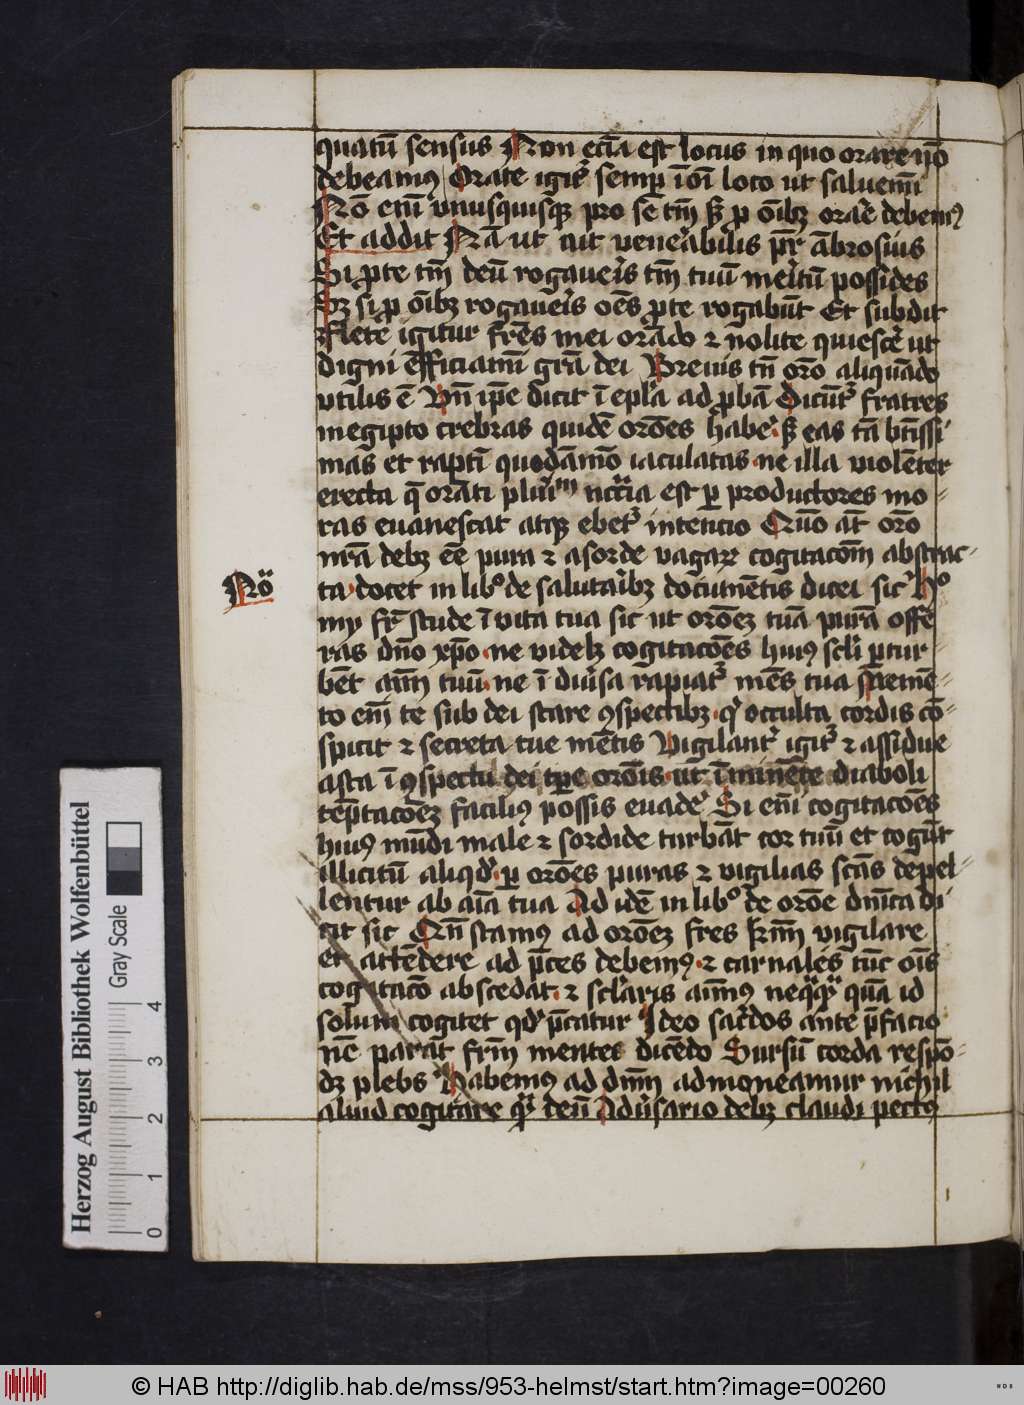 quatū sensus Non eciā est locus in quo orare nō
debeamus Orate igitᷣ semp̱ ī oī loco ut saluemī
Nō enī vnusquisqꝫ pro se tm̄ sꝫ ꝑ oībꝫ orare debemꝰ
Et addit Nā ut ait venerabilis pr̄ Ambrosius
Si ꝓ te tm̄ deū rogaueris tm̄ tuū meritū possides
Sꝫ si ꝑ oībꝫ rogaueris oēs ꝓ te rogabūt Et subdit
Flete igitur fr̄es mei orādo ⁊ nolite quiescere ut
digni efficiamī grā dei Breuis tn̄ orō aliquādo
vtilis ē Vn̄ ip̄e dicit ī ep̄la ad ꝓbā Dicūtᷣ fratres
in egipto crebras quidē orōes habere sꝫ eas tā btīssi
mas et raptī quodāmō iaculatas ne illa violēter
erecta q̄ orāti plurimū nccīa est ꝑ productores mo-
ras euanescat atqꝫ ebetᷣ intencio Quō at̄ orō
nrā debꝫ eē pura ⁊ a sorde vagarꝝ cogitacōm abstrac-
ta docet in libᵒ de salutaribꝫ documētis dicēs sic Hᵒ
Nō
my fr̄ stude ī vita tua sic ut orōeꝫ tuā purā offe
ras dn̄o xp̄o ne videlꝫ cogitacōes huiꝰ sclī ꝑtur-
bēt aīm tuū ne ī diuersa rapiatᷣ mēs tua sp̄ memē-
to enī te sub dei stare ꝯspectibꝫ qͥ occulta cordis cō-
spicit ⁊ secreta tue mētis Vigilantᷣ igitᷣ ⁊ assidue
asta ī ꝯspectu dei tp̄e orōis ut īminēte diaboli
tēptacōeꝫ faciliꝰ possis euadere Si enī cogitacōes
huiꝰ mūdi male ⁊ sordide turbāt cor tuū et cogūt
illicitū aliqd ꝑ orōes puras ⁊ vigilias scās depel-
lentur ab aīa tua Ad idē in libᵒ de orōe dn̄ica di
cit sic Qn̄ stamꝰ ad orōeꝫ fr̄es kmī vigilare
et attēdere ad p̄ces debemꝰ ⁊ carnales tūc oīs
cogitacō abscedat ⁊ sclaris aīmꝰ neqͣqͣ quā id
solum cogitet qd p̄catur Ideo sacerdos ante p̄facio
nē parāt fr̄m mentes dicēdo Sursū corda respō-
dꝫ plebs Habemus ad dn̄m admoneamur nichil
aliud cogitare qͣ deū Aduersario debꝫ claudi pectꝰ
Herzog August Bibliothek Wolfenbüttel
Gray Scale
0 1 2 3 4
© HAB http://diglib.hab.de/mss/953-helmst/start.htm?image=00260